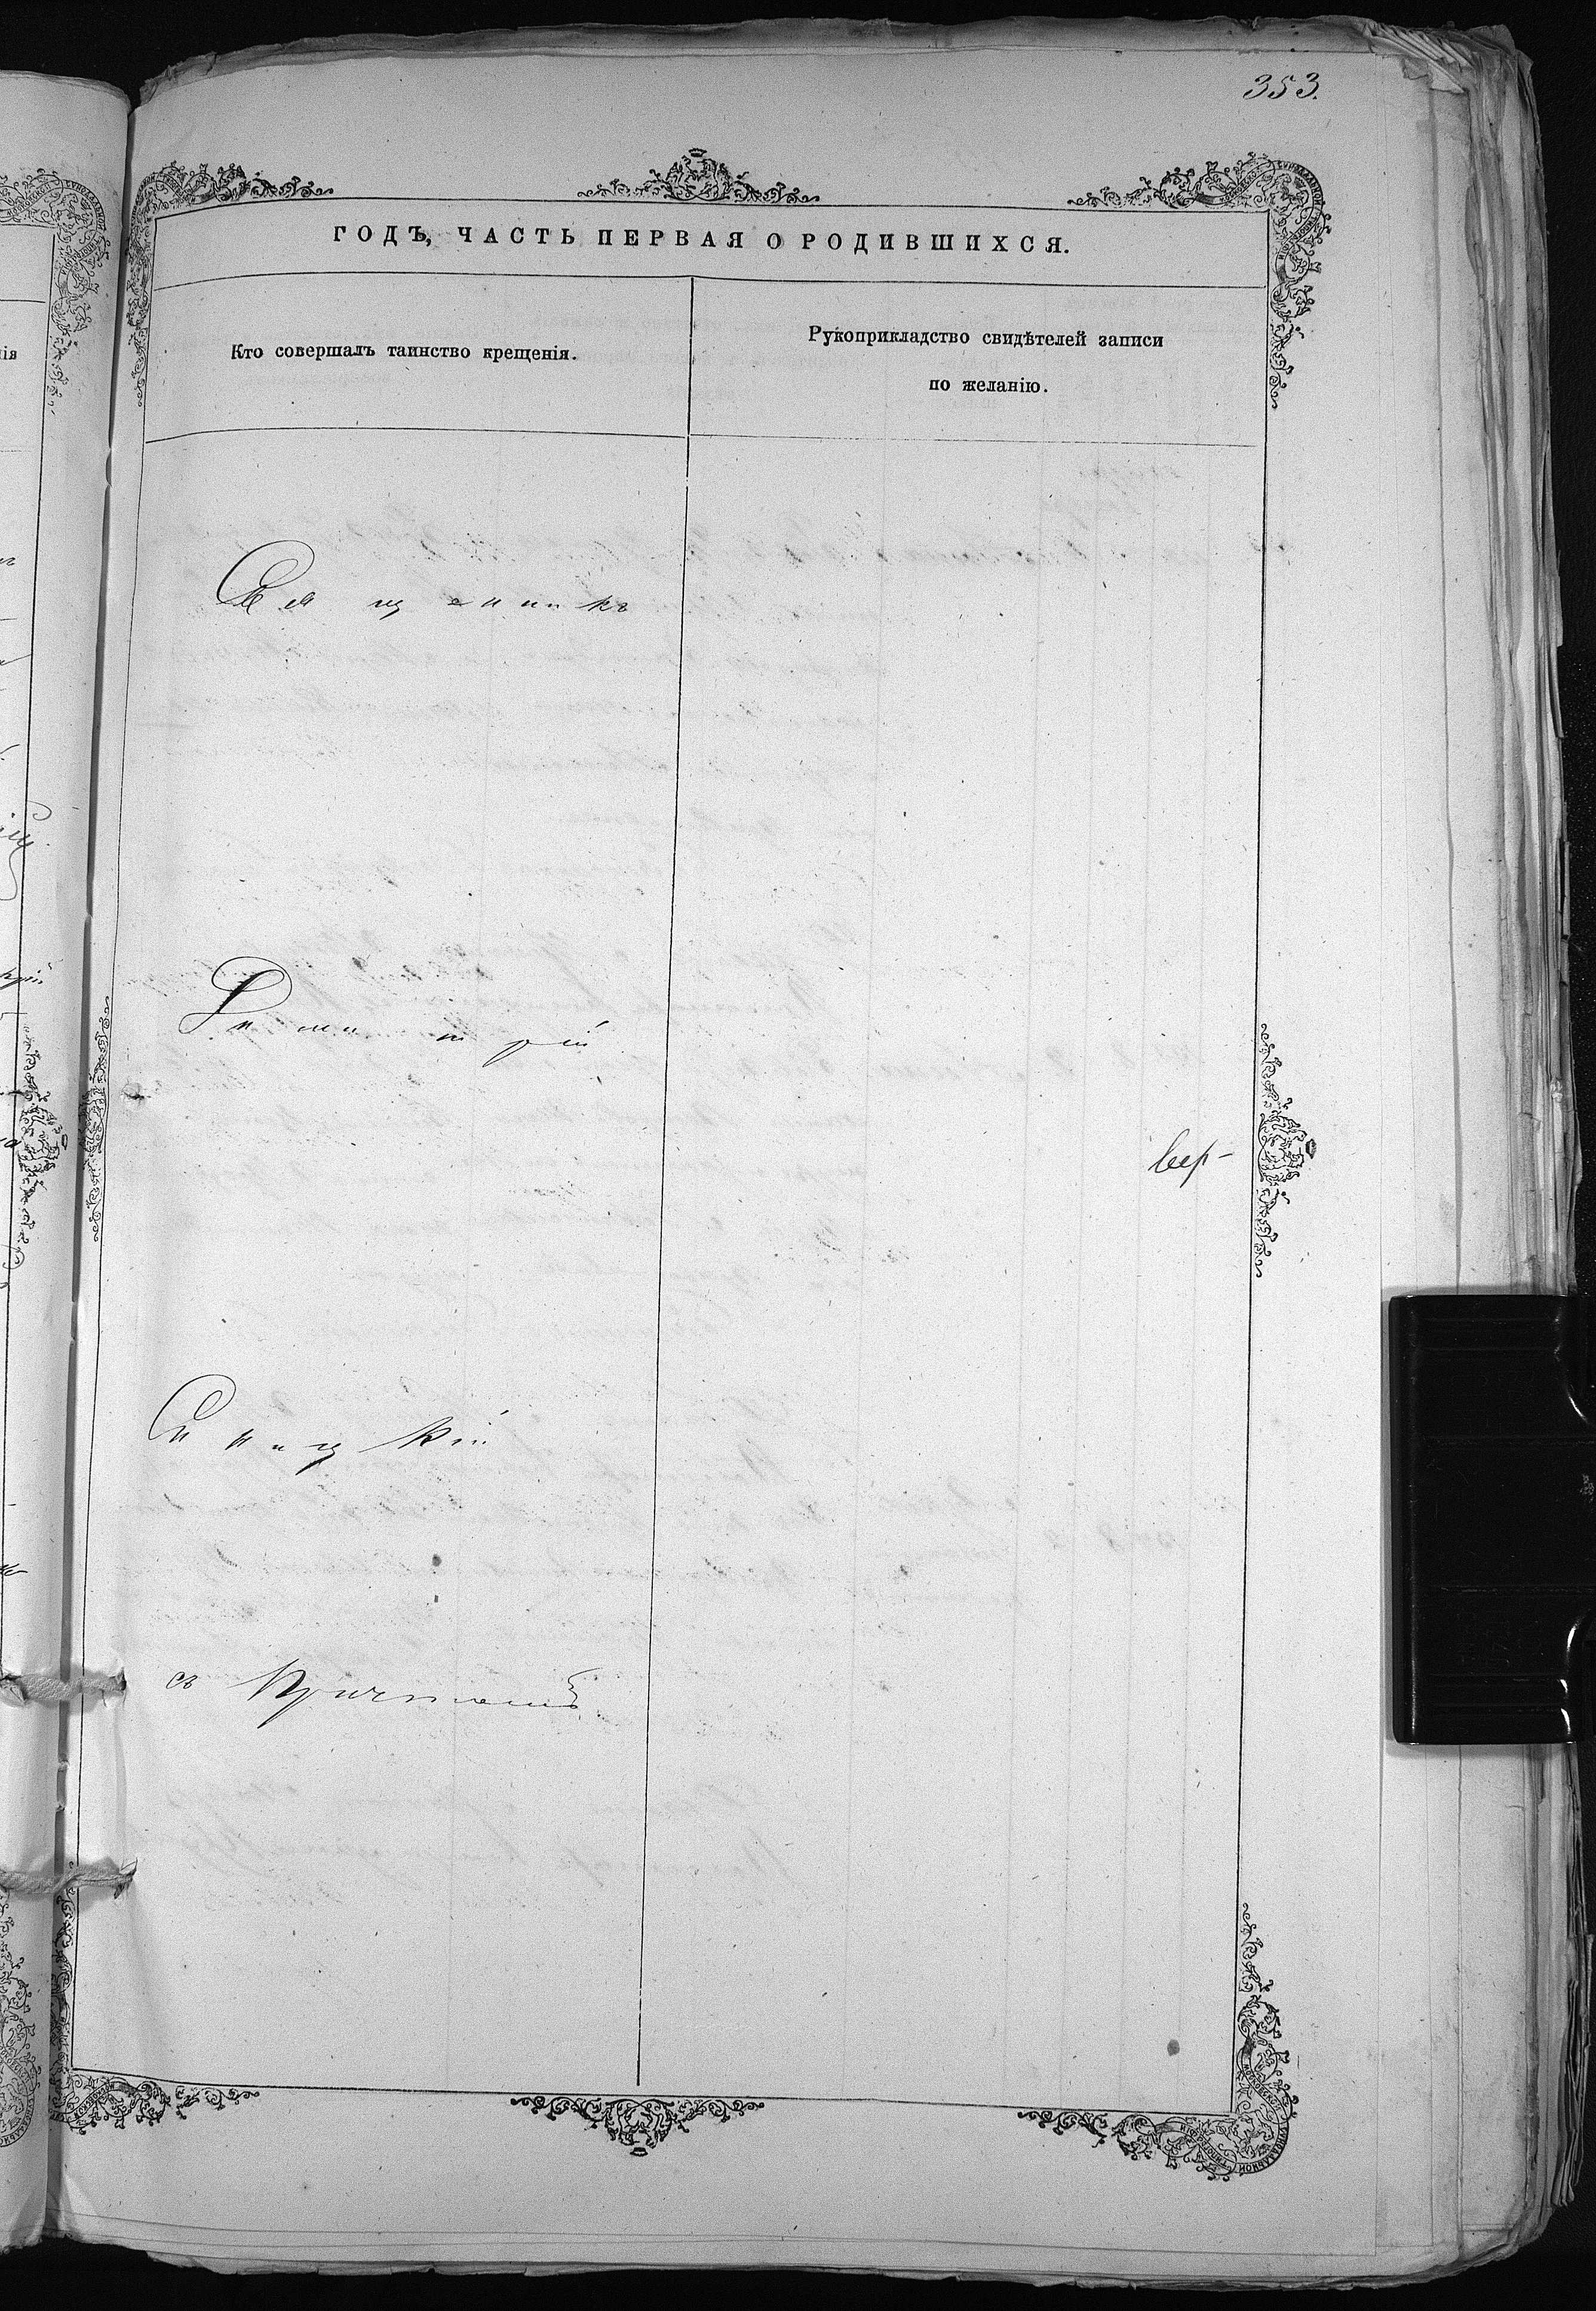 353.
ГОДЪ, ЧАСТЬ ПЕРВАЯ О РОДИВШИХСЯ.
Кто совершалъ таинство крещенія.
Рукоприкладство свидѣтелей записи
по желанію.
Священникъ
Димитрій
вер-
Синицкій
съ Причтомъ